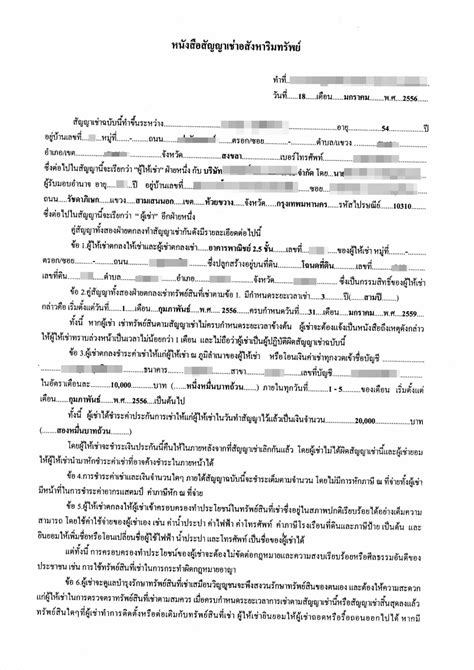 หนังสือสัญญาเช่าอสังหาริมทรัพย์
ทำที่
วันที่.....18.....เดือน.......มกราคม.......พ.ศ...2556....
สัญญาเช่าฉบับนี้ทำขึ้นระหว่าง อายุ......54......ปี
อยู่บ้านเลขที่ หมู่ที่.....-.....ถนน ตรอก/ซอย.........-.........ตำบล/แขวง
อำเภอ/เขต จังหวัด.......สงขลา.......เบอร์โทรศัพท์
ซึ่งต่อไปในสัญญานี้จะเรียกว่า "ผู้ให้เช่า" ฝ่ายหนึ่ง กับ บริษัท จำกัด โดย...นาย
ผู้รับมอบอำนาจ อายุ ปี อยู่บ้านเลขที่ ซอย
ถนน.....รัชดาภิเษก.......แขวง.....สามเสนนอก.....เขต.....ห้วยขวาง.....จังหวัด......กรุงเทพมหานคร......รหัสไปรษณีย์.....10310......
ซึ่งต่อไปในสัญญานี้จะเรียกว่า "ผู้เช่า" อีกฝ่ายหนึ่ง
คู่สัญญาทั้งสองฝ่ายตกลงทำสัญญาเช่ากันดังมีรายละเอียดต่อไปนี้
ข้อ 1.ผู้ให้เช่าตกลงให้เช่าและผู้เช่าตกลงเช่า.....อาคารพาณิชย์ 2.5 ชั้น.....เลขที่ ของผู้ให้เช่า หมู่ที่.....-.....
ตรอก/ซอย......-......ถนน ซึ่งปลูกสร้างอยู่บนที่ดิน.......โฉนดที่ดิน.......เลขที่
เลขที่ดิน ตำบล อำเภอ จังหวัด ซึ่งเป็นกรรมสิทธิ์ของผู้ให้เช่า
ข้อ 2.คู่สัญญาทั้งสองฝ่ายตกลงเช่าทรัพย์สินที่เช่าตามข้อ 1. มีกำหนดระยะเวลาเช่า.....3.....ปี (.....สามปี.....)
กล่าวคือ เริ่มตั้งแต่วันที่.....1.....เดือน.....กุมภาพันธ์.....พ.ศ...2556...ครบกำหนดวันที่.....31.....เดือน.....มกราคม.....พ.ศ...2559...
ทั้งนี้ หากผู้เช่า เช่าทรัพย์สินตามสัญญาเช่าไม่ครบกำหนดระยะเวลาข้างต้น ผู้เช่าจะต้องแจ้งเป็นหนังสือถึงเหตุดังกล่าว
ให้ผู้ให้เช่าทราบล่วงหน้าเป็นเวลาไม่น้อยกว่า 1 เดือน และไม่ถือว่าผู้เช่าเป็นผู้ปฏิบัติผิดสัญญาเช่าฉบับนี้
ข้อ 3.ผู้เช่าตกลงชำระค่าเช่าแก่ผู้ให้เช่า ณ ภูมิลำเนาของผู้ให้เช่า หรือโอนเงินค่าเช่าทุกงวดเข้าชื่อบัญชี
ธนาคาร สาขา เลขที่บัญชี
ในอัตราเดือนละ.......10,000.......บาท (......หนึ่งหมื่นบาทถ้วน......) ภายในทุกวันที่.....1 - 5......ของเดือน เริ่มตั้งแต่
เดือน.....กุมภาพันธ์.....พ.ศ...2556...เป็นต้นไป
ทั้งนี้ ผู้เช่าได้ชำระค่าประกันการเช่าให้แก่ผู้ให้เช่าในวันทำสัญญาไว้แล้วเป็นเงินจำนวน.......20,000.......บาท
(......สองหมื่นบาทถ้วน......)
โดยผู้ให้เช่าจะชำระเงินประกันนี้คืนให้ในภายหลังจากที่สัญญาเช่าเลิกกันแล้ว โดยผู้เช่าไม่ได้ผิดสัญญาเช่านี้และผู้เช่ายอม
ให้ผู้ให้เช่านำมาหักชำระค่าเช่าที่อาจค้างชำระในภายหน้าได้
ข้อ 4.การชำระค่าเช่าและเงินจำนวนใดๆ ภายใต้สัญญาฉบับนี้จะชำระเต็มตามจำนวน โดยไม่มีการหักภาษี ณ ที่จ่ายทั้งผู้เช่า
มีหน้าที่ในการชำระค่าอากรแสตมป์ ค่าภาษีหัก ณ ที่จ่าย
ข้อ 5.ผู้ให้เช่าตกลงให้ผู้เช่าเข้าครอบครองทำประโยชน์ในทรัพย์สินที่เช่าซึ่งอยู่ในสภาพปกติเรียบร้อยได้อย่างเต็มความ
สามารถ โดยใช้ค่าใช้จ่ายของผู้เช่าเอง เช่น ค่าน้ำประปา ค่าไฟฟ้า ค่าโทรศัพท์ ค่าภาษีโรงเรือนที่ดินและภาษีป้าย เป็นต้น และ
ยินยอมให้เพิ่มชื่อหรือโอนเปลี่ยนชื่อผู้ใช้ไฟฟ้า น้ำประปา และโทรศัพท์ เป็นชื่อของผู้เช่าได้
แต่ทั้งนี้ การครอบครองทำประโยชน์ของผู้เช่าจะต้องไม่ขัดต่อกฎหมายและความสงบเรียบร้อยหรือศีลธรรมอันดีของ
ประชาชน เช่น การใช้ทรัพย์สินที่เช่าในการกระทำผิดกฎหมายอาญา
ข้อ 6.ผู้เช่าจะดูแลบำรุงรักษาทรัพย์สินที่เช่าเสมือนวิญญูชนจะพึงสงวนรักษาทรัพย์สินของตนเอง และต้องให้ความสะดวก
แก่ผู้ให้เช่าในการตรวจตราทรัพย์สินที่เช่าตามสมควร เมื่อครบกำหนดระยะเวลาการเช่าตามสัญญาเช่านี้หรือสัญญาเช่าสิ้นสุดลงแล้ว
ทรัพย์สินใดๆที่ผู้เช่าทำการติดตั้งหรือต่อเติมกับทรัพย์สินที่เช่า ผู้ให้เช่ายินยอมให้ผู้เช่าถอดหรือรื้อถอนออกไปได้ หากมี